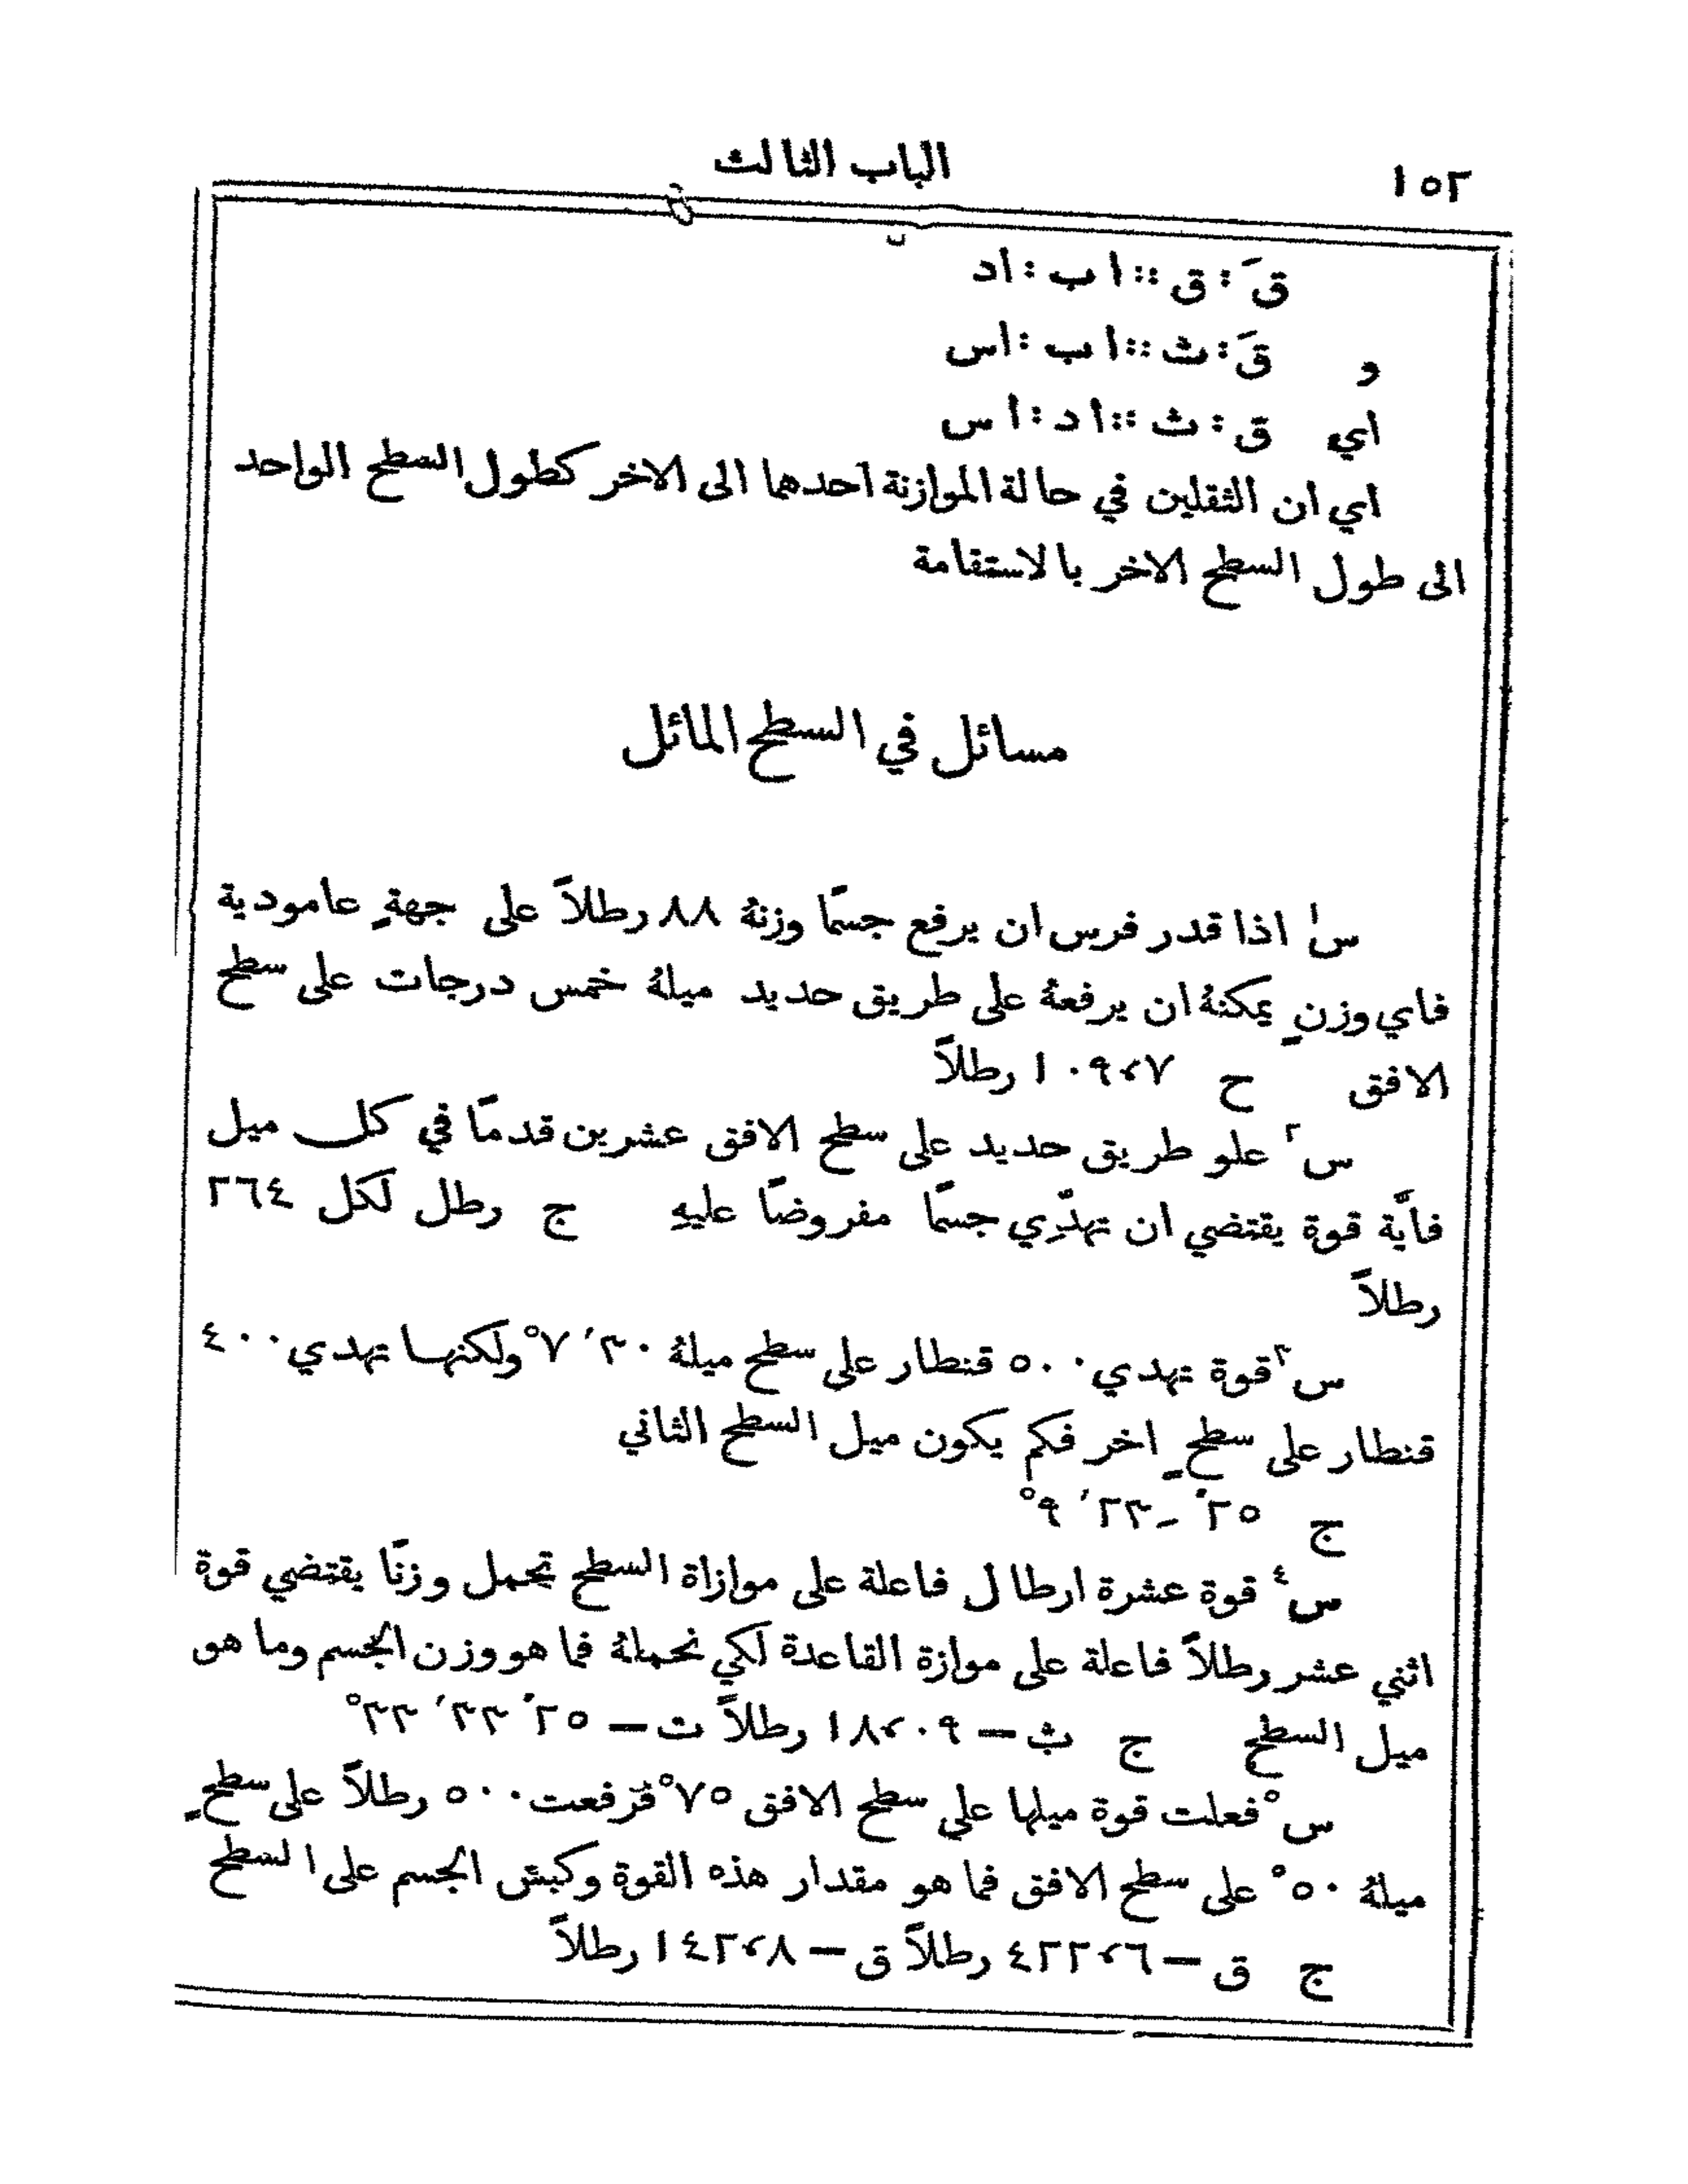 ١٥٢
الباب الثالث
قَ : ق :: ا ب : اد
و قَ : ث :: ا ب : اس
اي ق : ث :: ا د : ا س
اي ان الثقلين في حالة الموازنة احدهما الى الاخر كطول السطح الواحد
الى طول السطح الاخر بالاستقامة
مسائل في السطح المائل
س١ اذا قدر فرس ان يرفع جسمًا وزنهُ ٨٨ رطلاً على جهةٍ عامودية
فاي وزنٍ يمكنهُ ان يرفعهُ على طريق حديد ميلهُ خمس درجات على سطح
الافق ح ١٠٠٩٬٧ رطلاً
س٢ علو طريق حديد على سطح الافق عشرين قدمًا في كل ميل
فأيَّة قوة يقتضي ان تهدِّي جسمًا مفروضًا عليهِ ج رطل لكل ٢٦٤
رطلاً
س٣ قوة تهدي ٥٠٠ قنطار على سطح ميلهُ ٣٠′ ٧° ولكنها تهدي ٤٠٠
قنطار على سطحٍ اخر فكم يكون ميل السطح الثاني
ج ٢٥″ ٢٣′ ٩°
س٤ قوة عشرة ارطال فاعلة على موازاة السطح تحمل وزنًا يقتضي قوة
اثني عشر رطلاً فاعلة على موازة القاعدة لكي نحملهُ فما هو وزن الجسم وما هو
ميل السطح ج ث — ١٨٬٠٩ رطلاً ت — ٢٥″ ٣٣′ ٣٣°
س٥ فعلت قوة ميلها على سطح الافق ٧٥° فرفعت ٥٠٠ رطلاً على سطحٍ
ميلهُ ٥٠° على سطح الافق فما هو مقدار هذه القوة وكبش الجسم على السطح
ج ق — ٤٢٢٬٦ رطلاً ق — ١٤٢٬٨ رطلاً